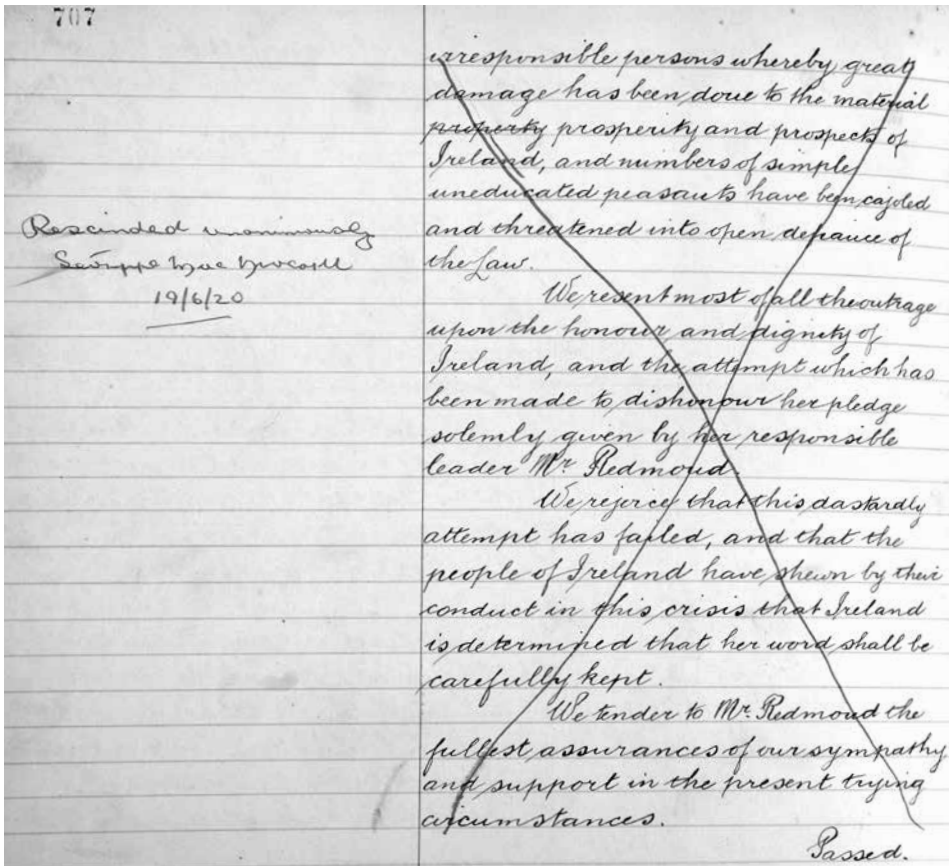 707
irresponsible persons whereby great
damage has been done to the material
property prosperity and prospects of
Ireland, and numbers of simple
uneducated peasants have been cajoled
and threatened into open defiance of
the Law.
We resent most of all the outrage
upon the honour and dignity of
Ireland, and the attempt which has
been made to dishonour her pledge
solemly given by her responsible
leader Mr. Redmond.
We rejoice that this dastardly
attempt has failed, and that the
people of Ireland have shewn by their
conduct in this crisis that Ireland
is determined that her word shall be
carefully kept.
We tender to Mr. Redmond the
fullest assurances of our sympathy
and support in the present trying
circumstances.
Passed.
Rescinded unanimously
19/6/20